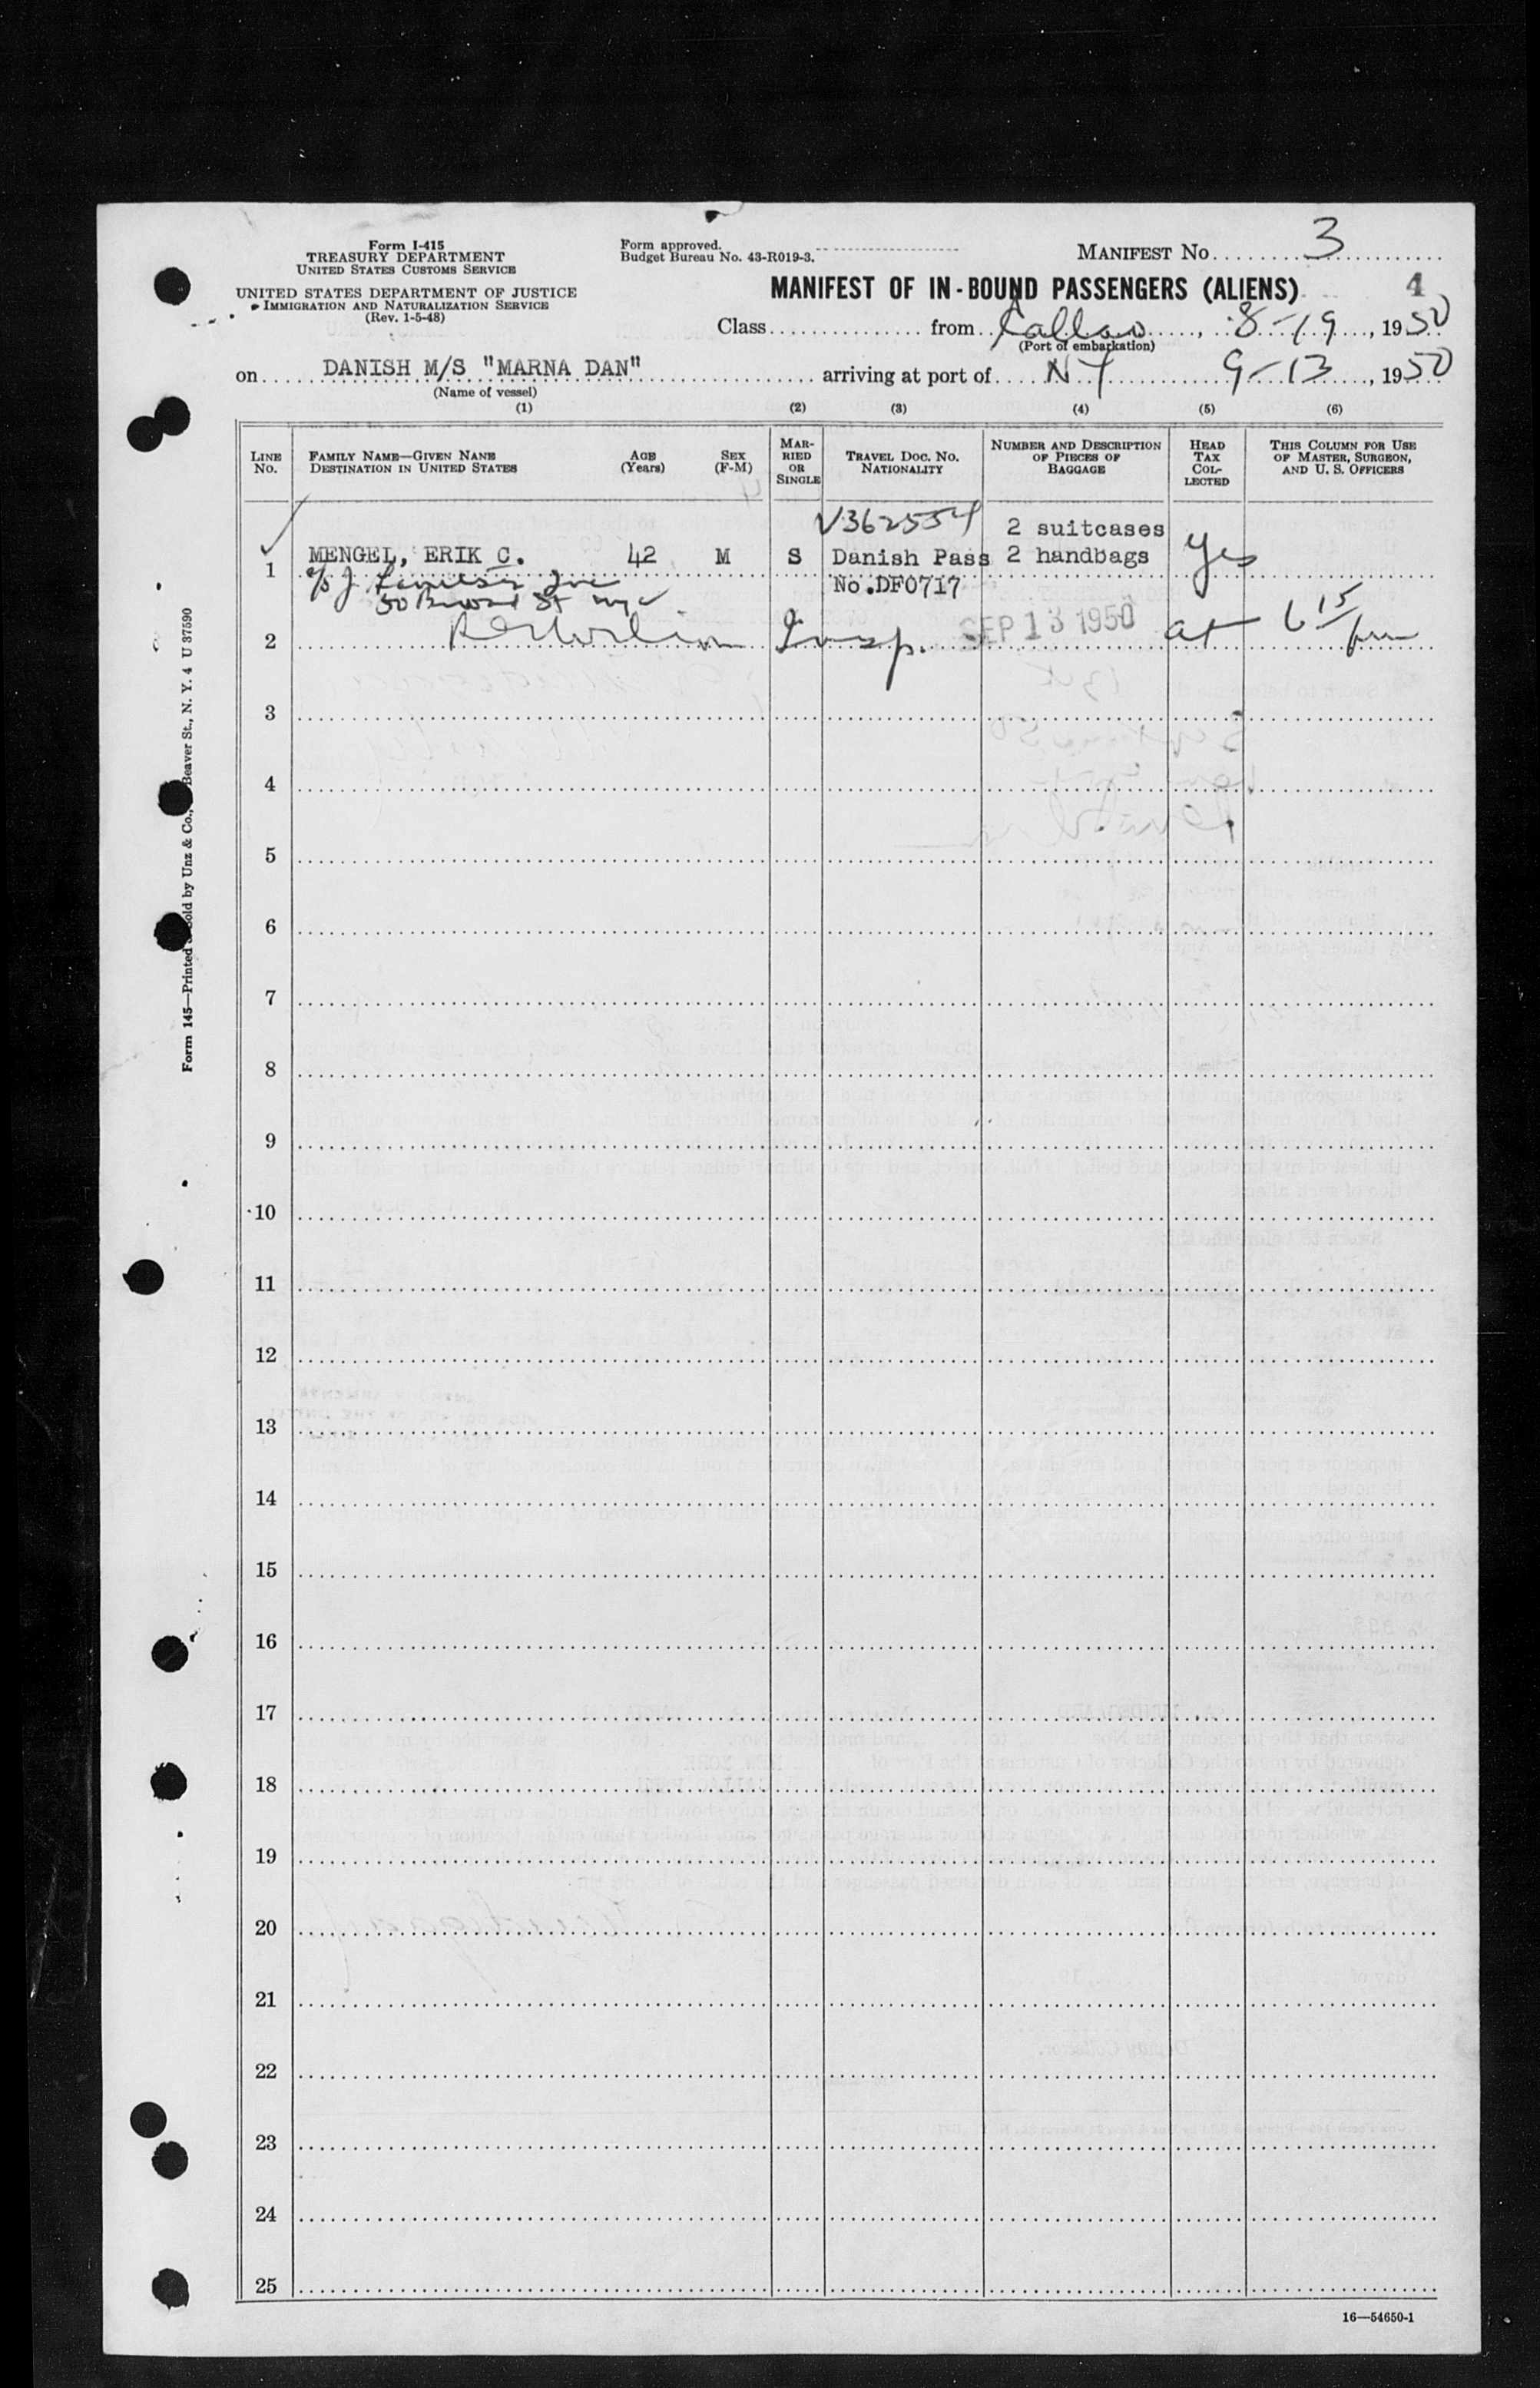 Form I-415
TREASURY DEPARTMENT
UNITED STATES CUSTOMS SERVICE
UNITED STATES DEPARTMENT OF JUSTICE
IMMIGRATION AND NATURALIZATION SERVICE
(Rev. 1-5-48)
Form approved.
Budget Bureau No. 43-R019-3.
MANIFEST NO. 3
MANIFEST OF IN-BOUND PASSENGERS (ALIENS) 4
Class from Callao, 8-19, 1950
(Port of embarkation)
on DANISH M/S "MARNA DAN" arriving at port of NY 9-13, 1950
(Name of vessel)
(1) (2) (3) (4) (5) (6)
LINE NO.
FAMILY NAME—GIVEN NAME
DESTINATION IN UNITED STATES
AGE (Years)
SEX (F-M)
MARRIED OR SINGLE
TRAVEL DOC. NO.
NATIONALITY
NUMBER AND DESCRIPTION OF PIECES OF BAGGAGE
HEAD TAX COLLECTED
THIS COLUMN FOR USE OF MASTER, SURGEON, AND U. S. OFFICERS
V362554 2 suitcases
1 MENGEL, ERIK C. 42 M S Danish Pass 2 handbags yes
c/o J. Inc No.DF0717
50 Broad St nyc
2 Insp. SEP 13 1950 at 6 15 pm
3
4
5
6
7
8
9
10
11
12
13
14
15
16
17
18
19
20
21
22
23
24
25
16—54650-1
Form 145—Printed Sold by Unz & Co., Beaver St., N. Y. 4 U 37590